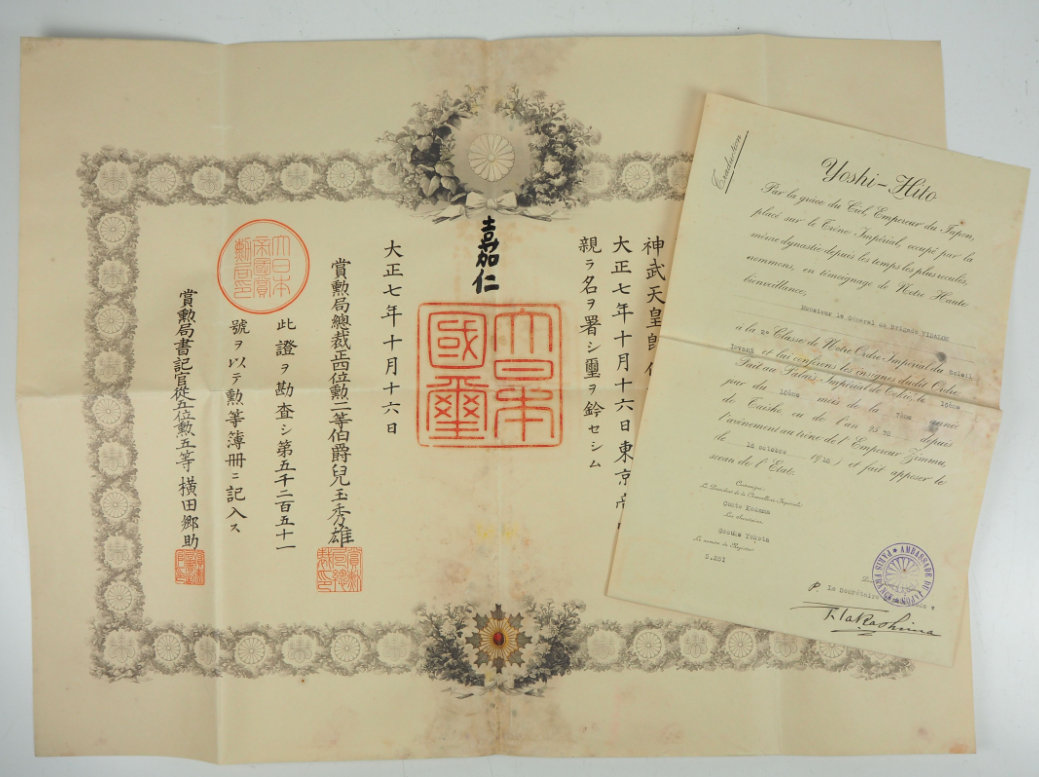 神武天皇即位
大正七年十月十六日東京
親ラ名ヲ署シ璽ヲ鈐セシム
嘉仁
大日本國璽
大正七年十月十六日
賞勲局總裁正四位勲二等伯爵兒玉秀雄
大日本帝國賞勲局印
此證ヲ勘査シ第五千二百五十一
號ヲ以テ勲等簿冊ニ記入ス
賞勲局書記官從五位勲五等橫田鄉助
Traduction
Yoshi-Hito
Par la grâce du Ciel, Empereur du Japon,
placé sur le Trône Impérial, occupé par la
même dynastie depuis les temps les plus reculés,
nommons, en témoignage de Notre Haute
bienveillance,
Monsieur le Général de Brigade
à la 2e Classe de Notre Ordre Impérial du Soleil
Levant et lui conférons les insignes dudit Ordre
Fait au Palais Impérial de Tokio, le 16ème
jour du 10ème mois de la 7ème année
de Taisho ou de l'an 25 depuis
l'avènement au trône de l'Empereur Zimmu,
le 16 octobre 1918) et fait apposer le
sceau de l'Etat.
Contresigné:
Le Directeur de la Chancellerie Impériale
Comte Kodama
Les secrétaires
Gosuke Yokota
Le numéro du Registre
5.251
AMBASSADE DU JAPON EN FRANCE PARIS
P. le Secrétaire